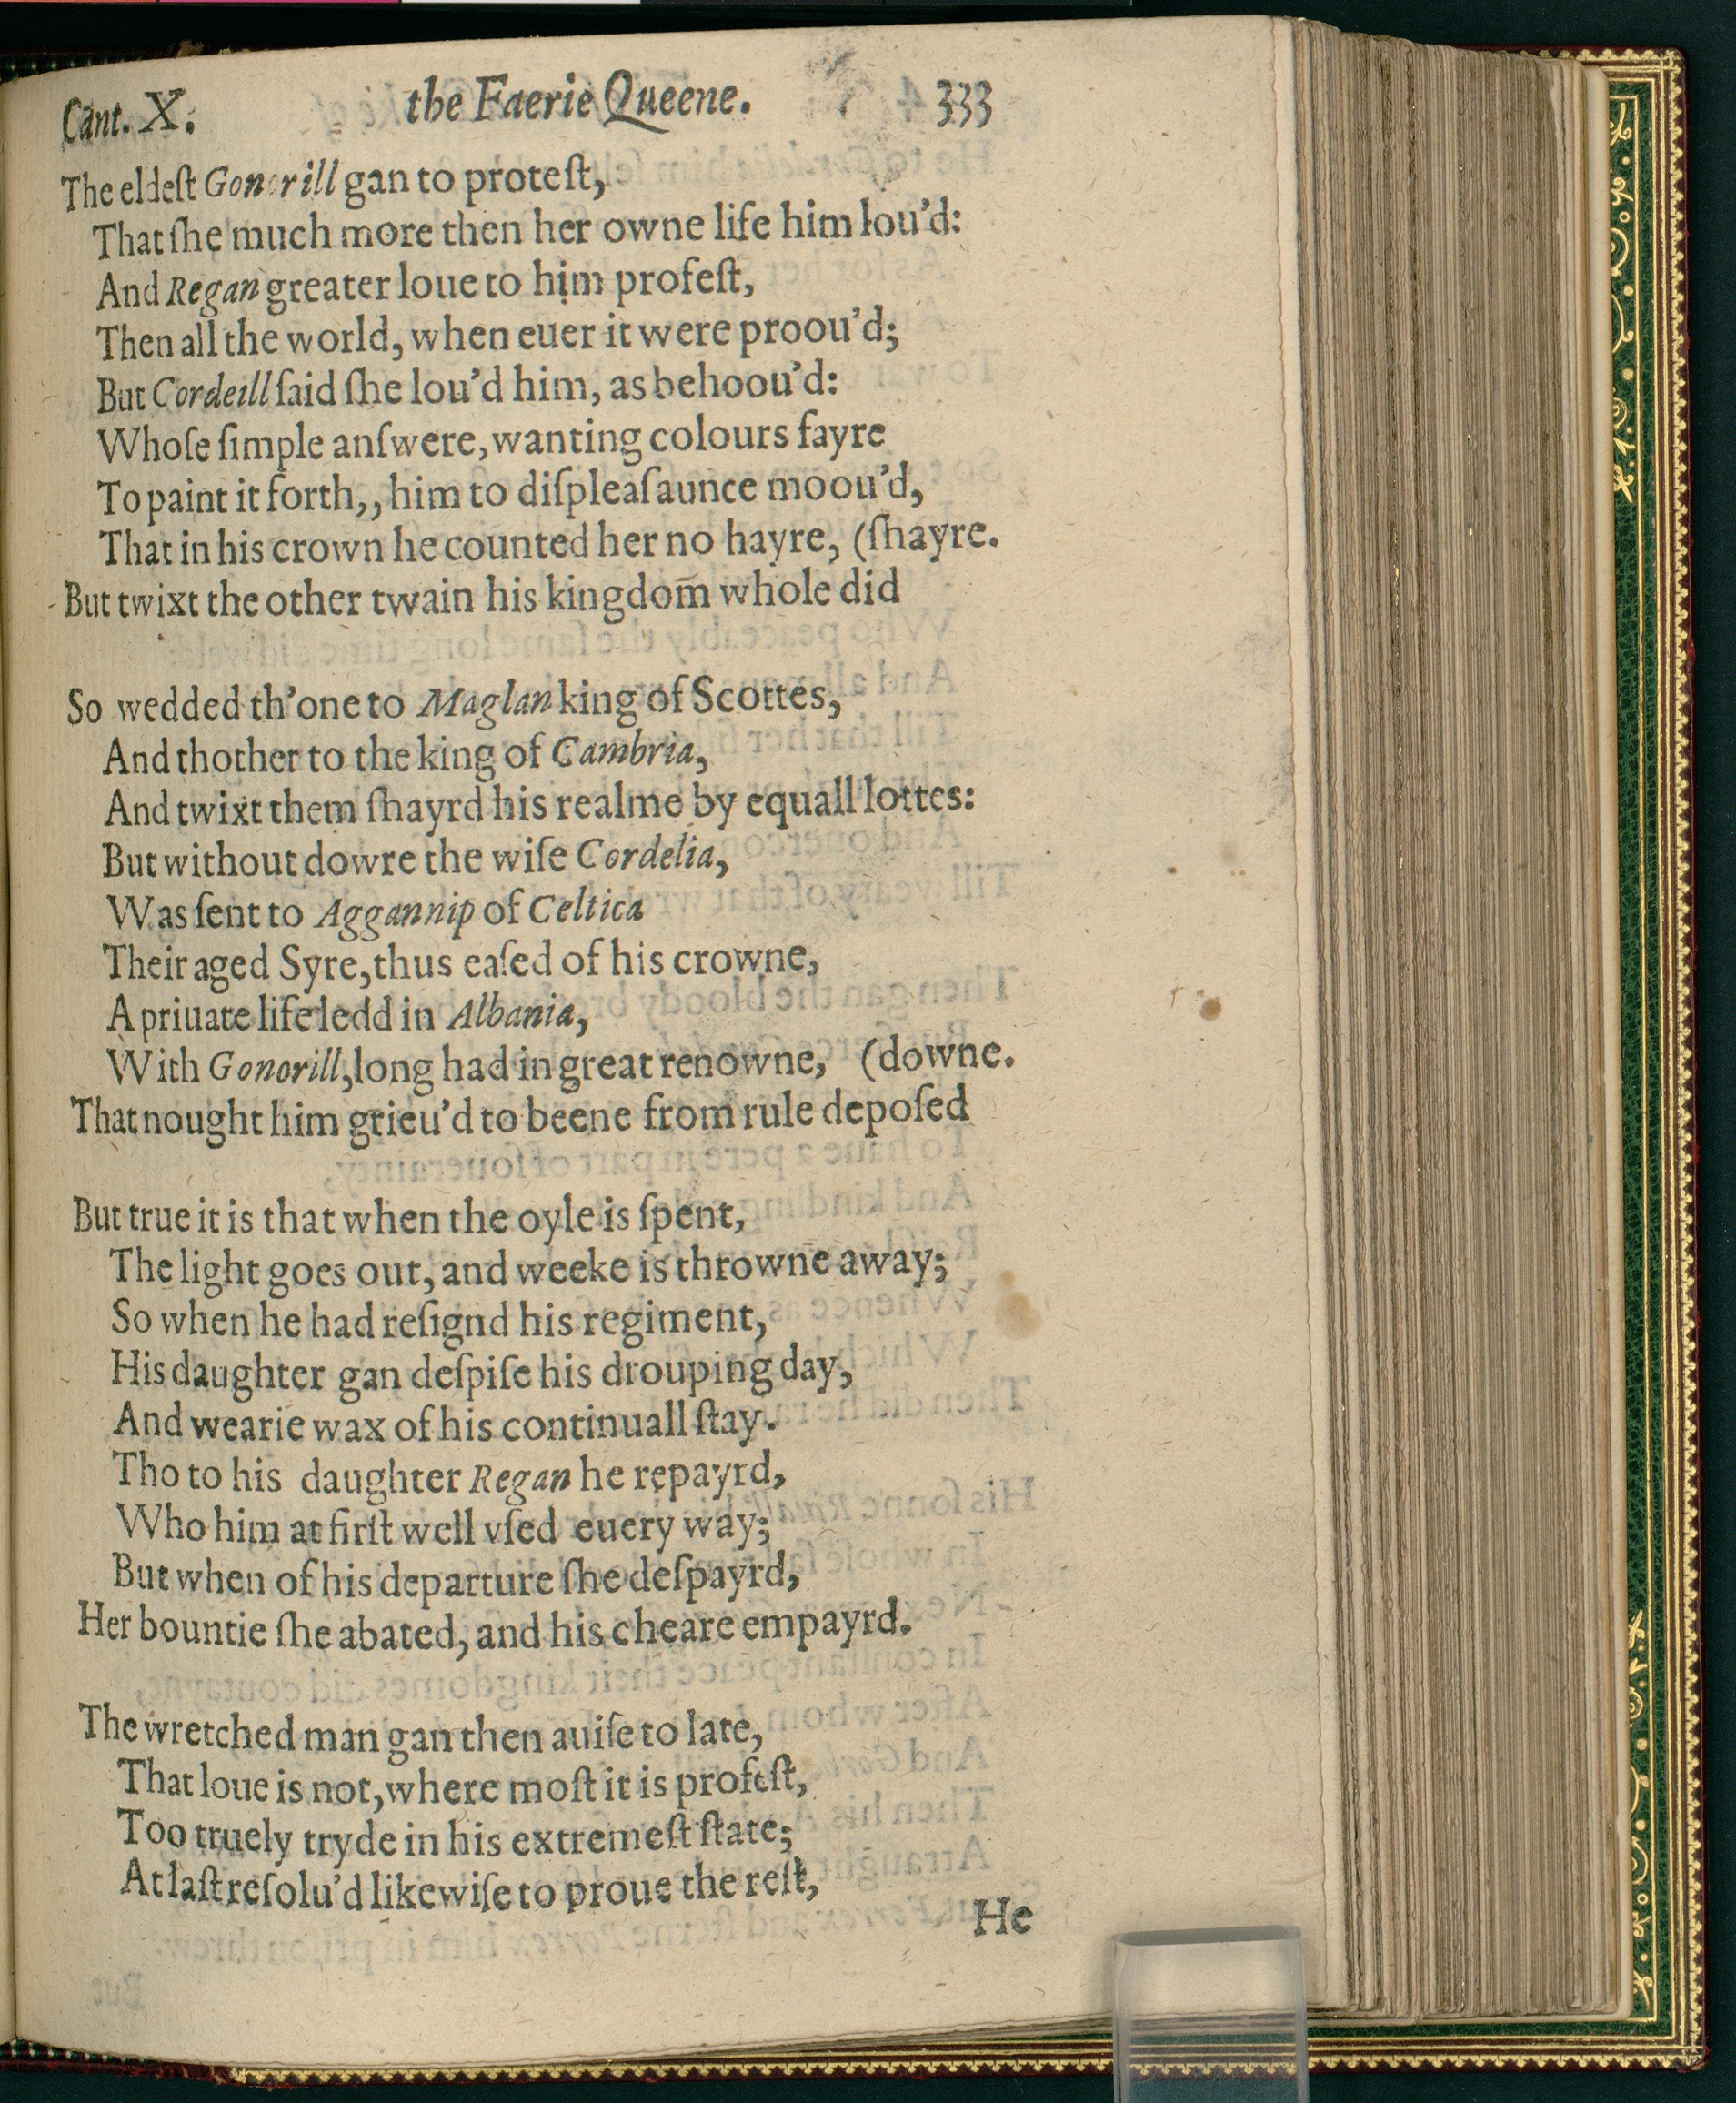 Cant. X. the Faerie Queene. 333
The eldeſt Gonorill gan to proteſt,
That ſhe much more then her owne life him lou'd:
And Regan greater loue to him profeſt,
Then all the world, when euer it were proou'd;
But Cordeill ſaid ſhe lou'd him, as behoou'd:
Whoſe ſimple anſwere, wanting colours fayre
To paint it forth,, him to diſpleaſaunce moou'd,
That in his crown he counted her no hayre, (ſhayre.
But twixt the other twain his kingdom̄ whole did
So wedded th'one to Maglan king of Scottes,
And thother to the king of Cambria,
And twixt them ſhayrd his realme by equall lottes:
But without dowre the wiſe Cordelia,
Was ſent to Aggannip of Celtica
Their aged Syre, thus eaſed of his crowne,
A priuate life ledd in Albania,
With Gonorill, long had in great renowne, (downe.
That nought him grieu'd to beene from rule depoſed
But true it is that when the oyle is ſpent,
The light goes out, and weeke is throwne away;
So when he had reſignd his regiment,
His daughter gan deſpiſe his drouping day,
And wearie wax of his continuall ſtay.
Tho to his daughter Regan he repayrd,
Who him at firſt well vſed euery way;
But when of his departure ſhe deſpayrd,
Her bountie ſhe abated, and his cheare empayrd.
The wretched man gan then auiſe to late,
That loue is not, where moſt it is profeſt,
Too truely tryde in his extremeſt ſtate;
At laſt reſolu'd likewiſe to proue the reſt,
He